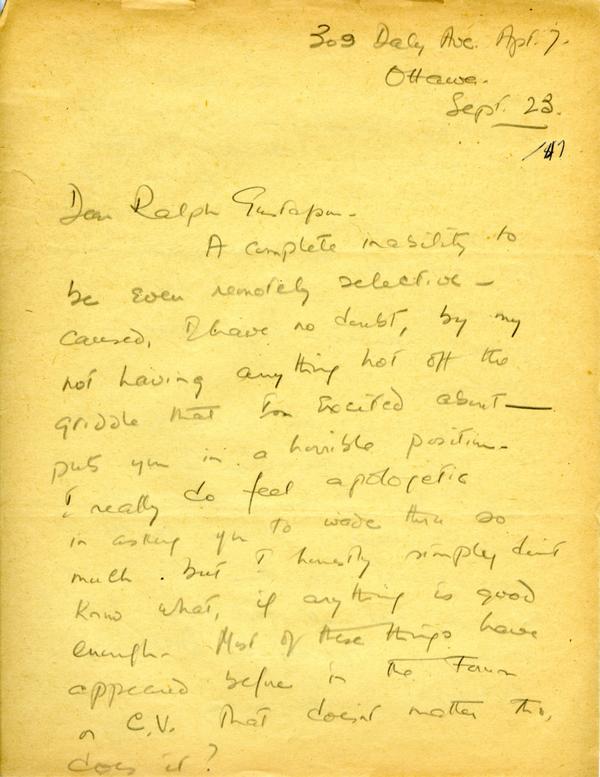 309 Daly Ave. Apt. 7.
Ottawa.
Sept. 23.
/47
Dear Ralph Gustafson -
A complete inability to
be even remotely selective -
caused, I have no doubt, by my
not having anything hot off the
griddle that I'm excited about -
puts you in a horrible position.
I really do feel apologetic
in asking you to wade thru so
much. but I honestly simply don't
know what, if anything is good
enough. Most of these things have
appeared before in the Forum
or C.V. That doesn't matter tho,
does it?